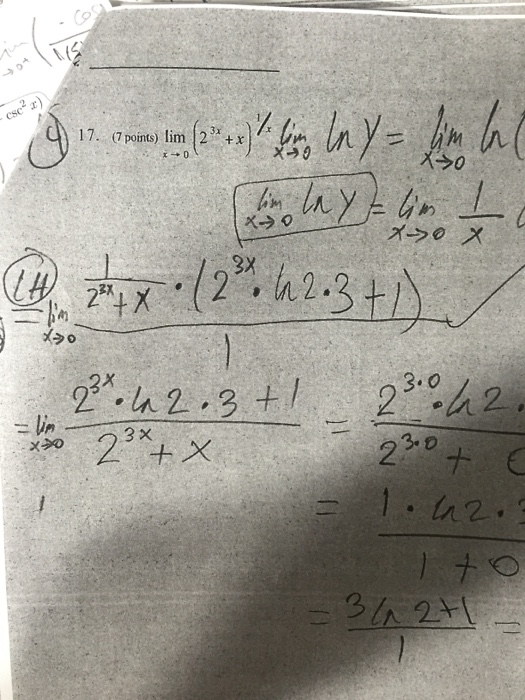 csc² x)
4
17. (7 points) lim x→0 (2^{3x} + x)^{1/x} lim x→0 ln y = lim x→0 ln (
lim x→0 ln y = lim x→0 1/x
LH = lim x→0 (1/(2^{3x} + x) · (2^{3x} · ln 2 · 3 + 1))/1
= lim x→0 (2^{3x} · ln 2 · 3 + 1)/(2^{3x} + x) = 2^{3·0} · ln 2 · / 2^{3·0} +
= 1 · ln 2 · / 1 + 0
= (3 ln 2 + 1)/1 =